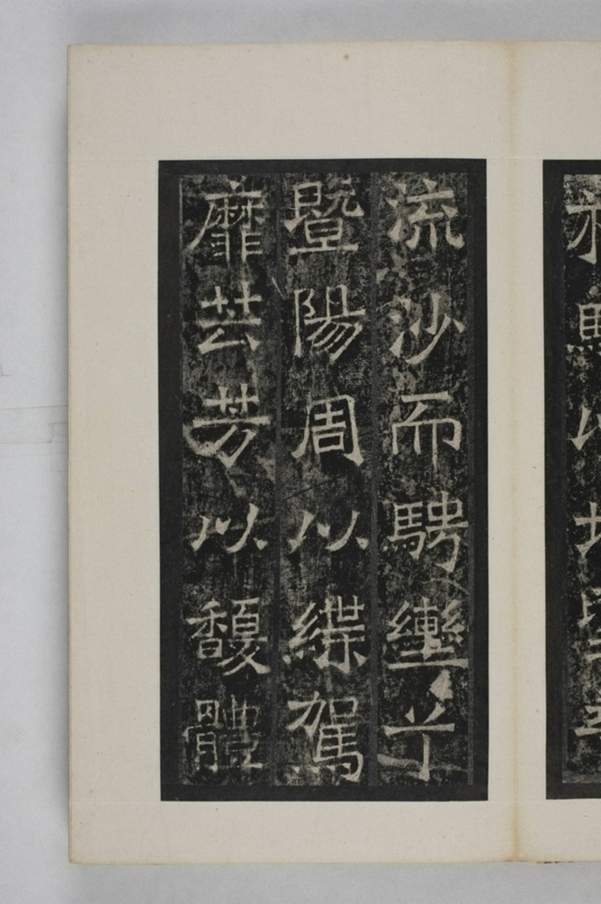 流沙而騁轡兮
暨陽周以緤駕
靡芸芳以馥體